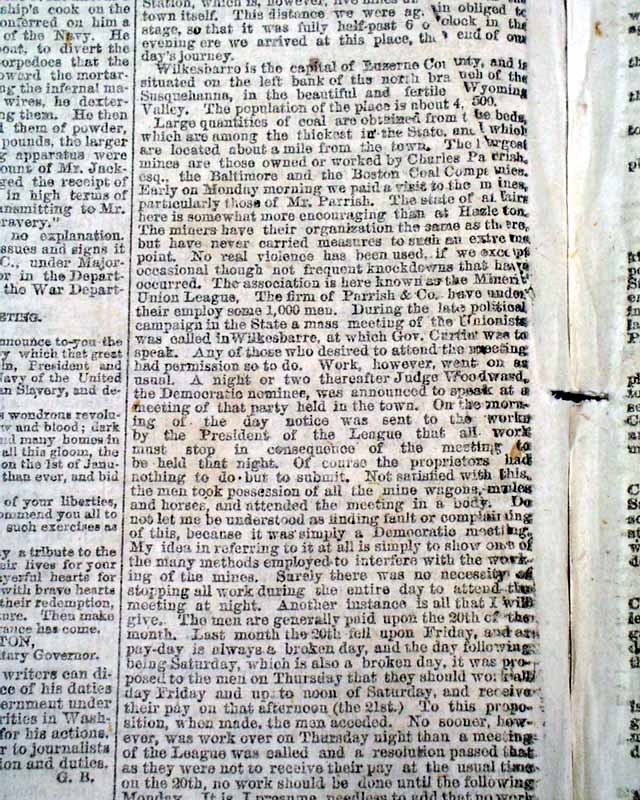 ship's cook on the
onferred on him a
of the Navy. He
boat, to divert the
orpedoes that the
oward the mortar-
ng the infernal ma-
wires, he dexter-
ng them. He then
d them of powder,
pounds, the larger
g apparatus were
ount of Mr. Jack-
ged the receipt of
in high terms of
ansmitting to Mr.
ravery."
no explanation.
issues and signs it
C., under Major-
or in the Depart-
the War Depart-
ETING.
announce to you the
y which that great
ln, President and
Navy of the United
an Slavery, and de-
s wondrous revolu-
w and blood; dark
d many homes in
all this gloom, the
on the 1st of Janu-
than ever, and bid
of your liberties,
ommend you all to
such exercises as
y a tribute to the
eir lives for your
yerful hearts for
with brave hearts
their redemption,
ure. Then make
rance has come.
TON,
itary Governor.
writers can di-
ce of his duties
ernment under
rities in Wash-
for his actions.
r to journalists
ion and duties.
G. B.
Station, which is, however, five miles
town itself. This distance we were ag in obliged to
stage, so that it was fully half-past 6 o'clock in the
evening ere we arrived at this place, the end of our
day's journey.
Wilkesbarro is the capital of Luzerne County, and is
situated on the left bank of the north branch of the
Susquehanna, in the beautiful and fertile Wyoming
Valley. The population of the place is about 4,500.
Large quantities of coal are obtained from the beds,
which are among the thickest in the State, and which
are located about a mile from the town. The largest
mines are those owned or worked by Charles Parrish,
esq., the Baltimore and the Boston Coal Companies.
Early on Monday morning we paid a visit to the mines,
particularly those of Mr. Parrish. The state of affairs
here is somewhat more encouraging than at Hazleton.
The miners have their organization the same as there,
but have never carried measures to such an extreme
point. No real violence has been used, if we except
occasional though not frequent knockdowns that have
occurred. The association is here known as the Miners'
Union League. The firm of Parrish & Co. have under
their employ some 1,000 men. During the late political
campaign in the State a mass meeting of the Unionists
was called in Wilkesbarre, at which Gov. Curtin was to
speak. Any of those who desired to attend the meeting
had permission so to do. Work, however, went on as
usual. A night or two thereafter Judge Woodward,
the Democratic nominee, was announced to speak at a
meeting of that party held in the town. On the morn-
ing of the day notice was sent to the works
by the President of the League that all work
must stop in consequence of the meeting to
be held that night. Of course the proprietors had
nothing to do but to submit. Not satisfied with this,
the men took possession of all the mine wagons, mules
and horses, and attended the meeting in a body. Do
not let me be understood as finding fault or complaining
of this, because it was simply a Democratic meeting.
My idea in referring to it at all is simply to show one of
the many methods employed to interfere with the work-
ing of the mines. Surely there was no necessity of
stopping all work during the entire day to attend the
meeting at night. Another instance is all that I will
give. The men are generally paid upon the 20th of the
month. Last month the 20th fell upon Friday, and as
pay-day is always a broken day, and the day following
being Saturday, which is also a broken day, it was pro-
posed to the men on Thursday that they should work all
day Friday and up to noon of Saturday, and receive
their pay on that afternoon (the 21st.) To this propo-
sition, when made, the men acceded. No sooner, how-
ever, was work over on Thursday night than a meeting
of the League was called and a resolution passed that
as they were not to receive their pay at the usual time
on the 20th, no work should be done until the following
Monday. It is, I presume, needless to add that no work